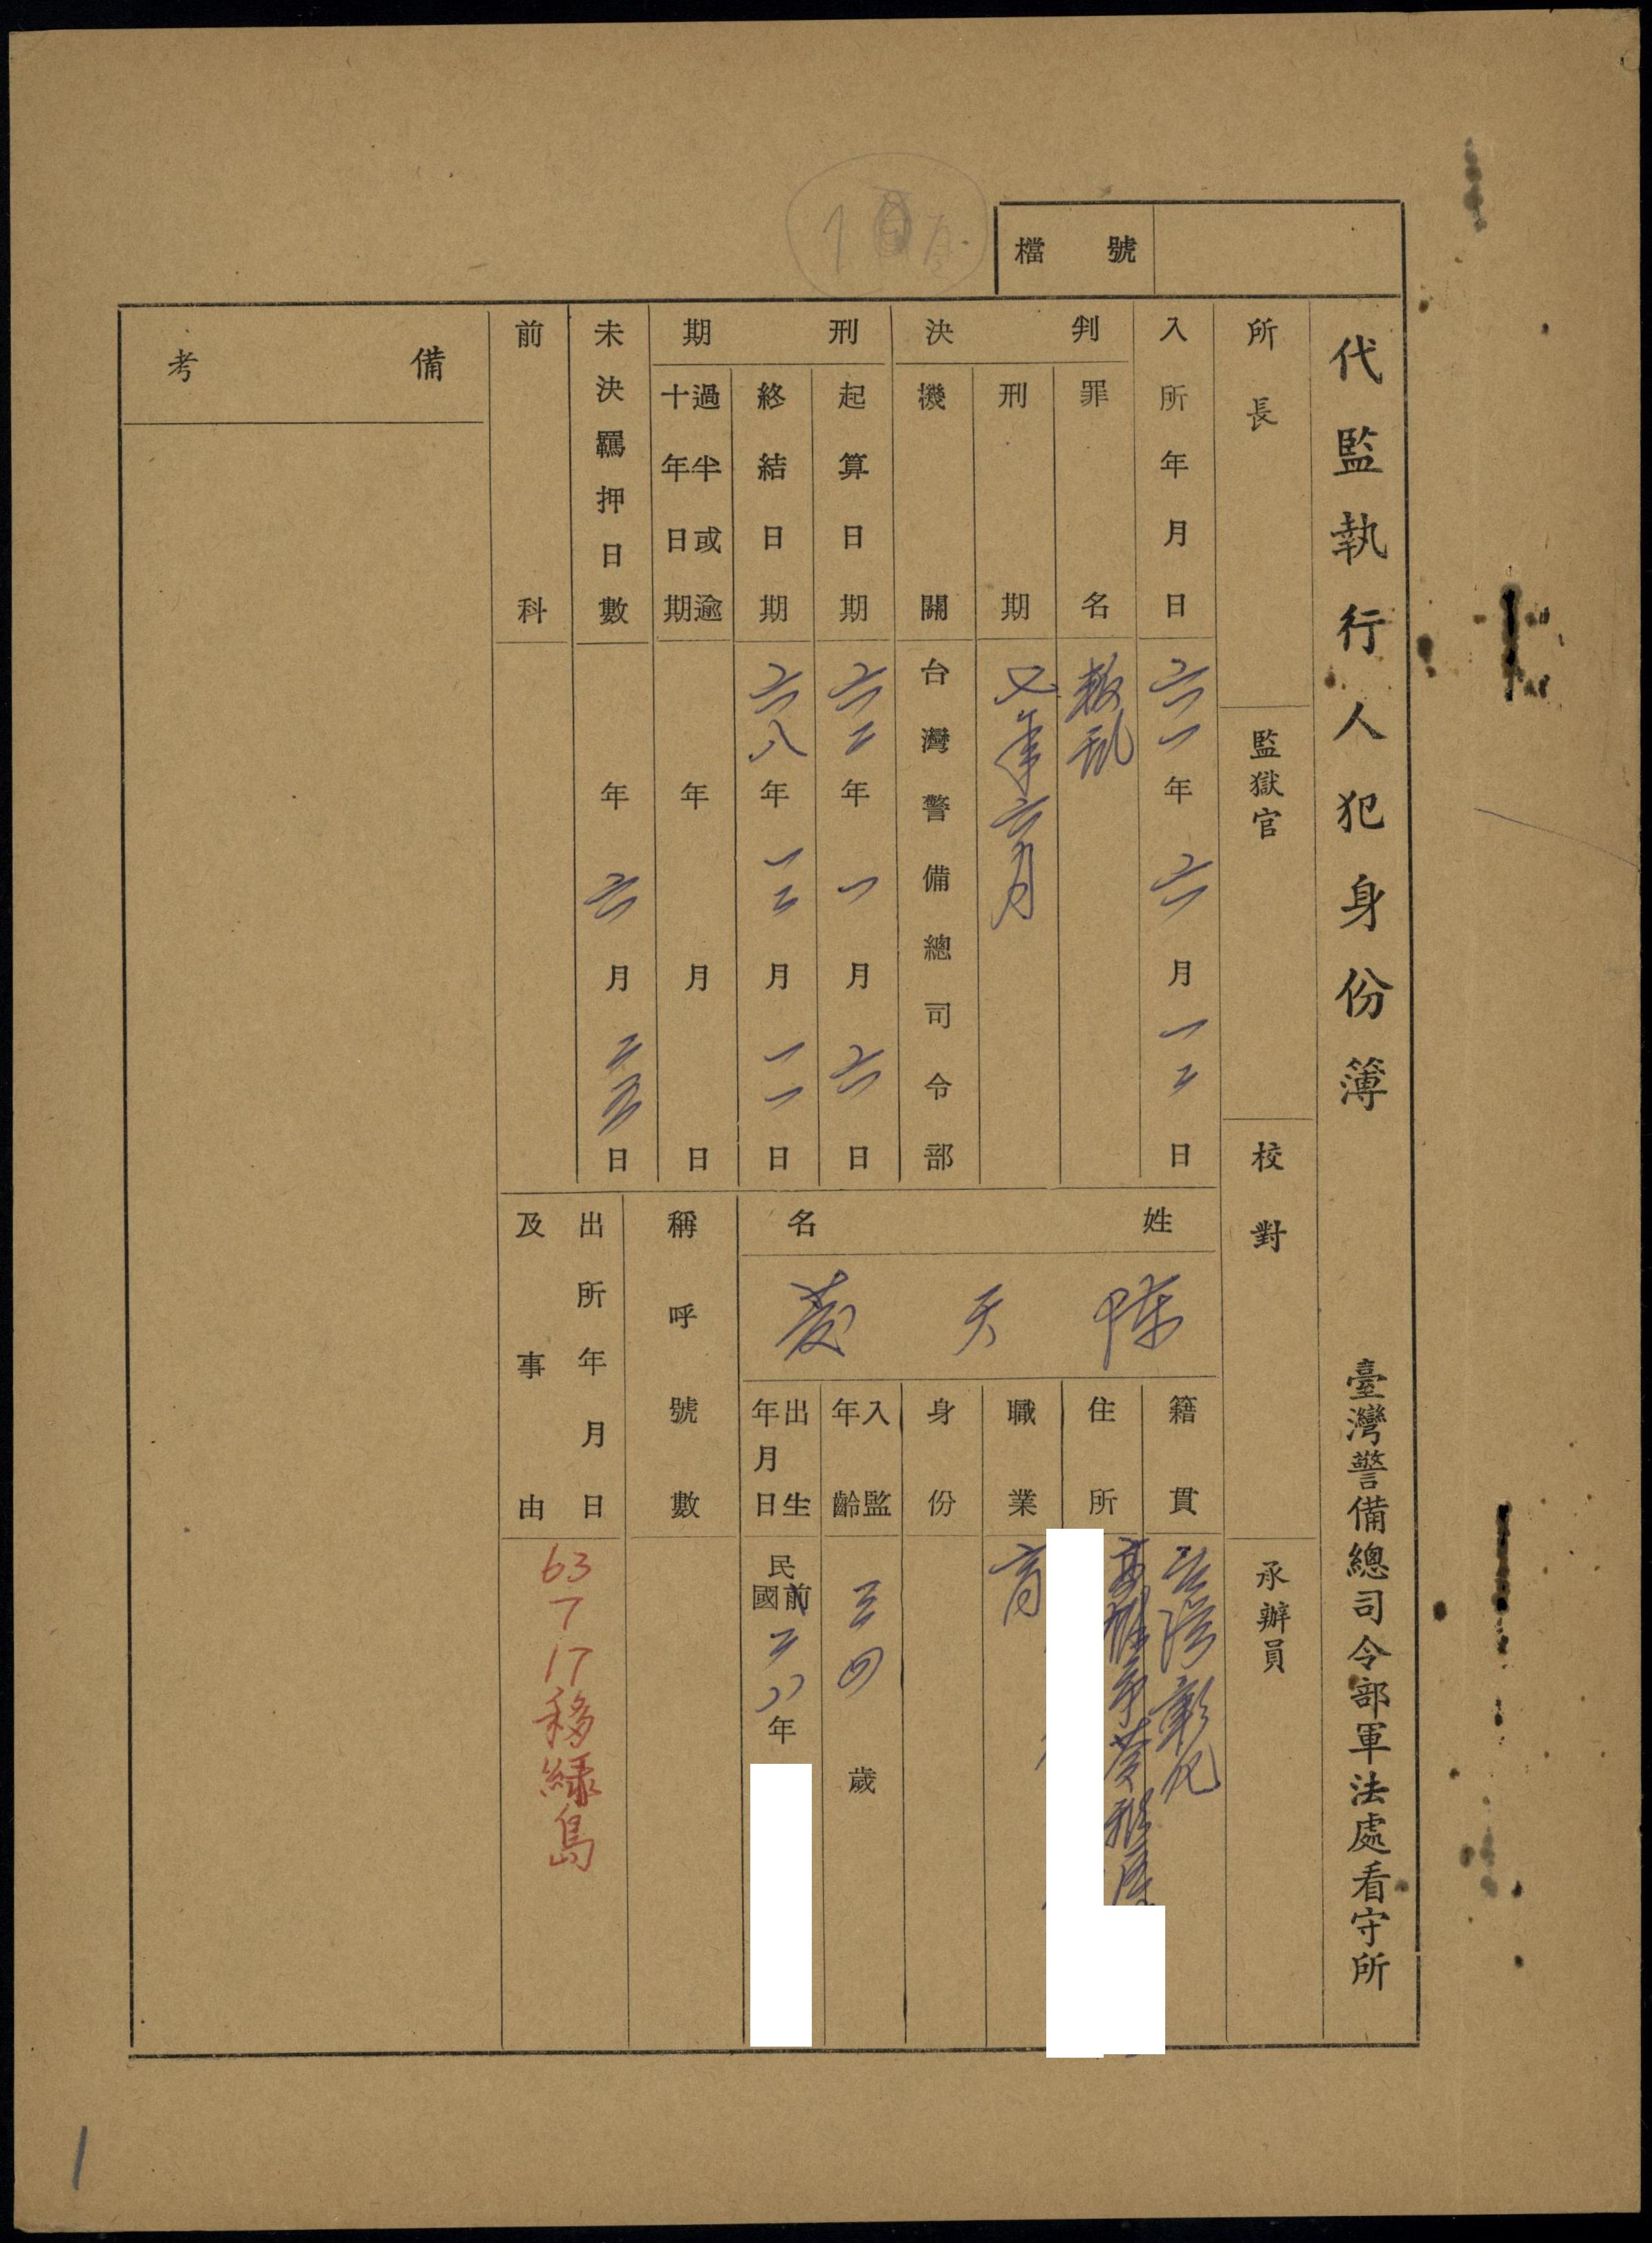 檔號
代監執行人犯身份簿
臺灣警備總司令部軍法處看守所
所長
監獄官
校對
承辦員
入所年月日
六一年六月一二日
判決
罪名
叛乱
刑期
七年六月
機關
台灣警備總司令部
刑期
起算日期
六二年一月六日
終結日期
六八年一二月一一日
過半或逾十年日期
年月日
未決羈押日數
年六月二五日
前科
備考
姓名
陈天發
籍貫
台灣彰化
住所
高雄市苓雅區
職業
商
身份
入監年齡
三四歲
出生年月日
民國前二八年
稱呼號數
出所年月日及事由
63
7
17
移綠島
1